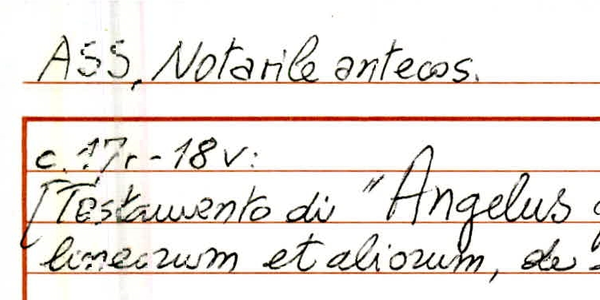 ASS, Notarile antecos.
c. 17r - 18v:
[Testamento di "Angelus
lineorum et aliorum, de